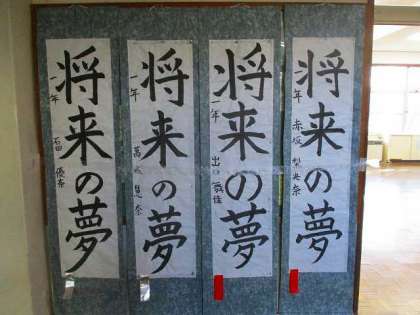 将来の夢
一年 赤坂 梨央奈
将来の夢
一年 出口 舞佳
将来の夢
一年
将来の夢
一年 石田 優奈